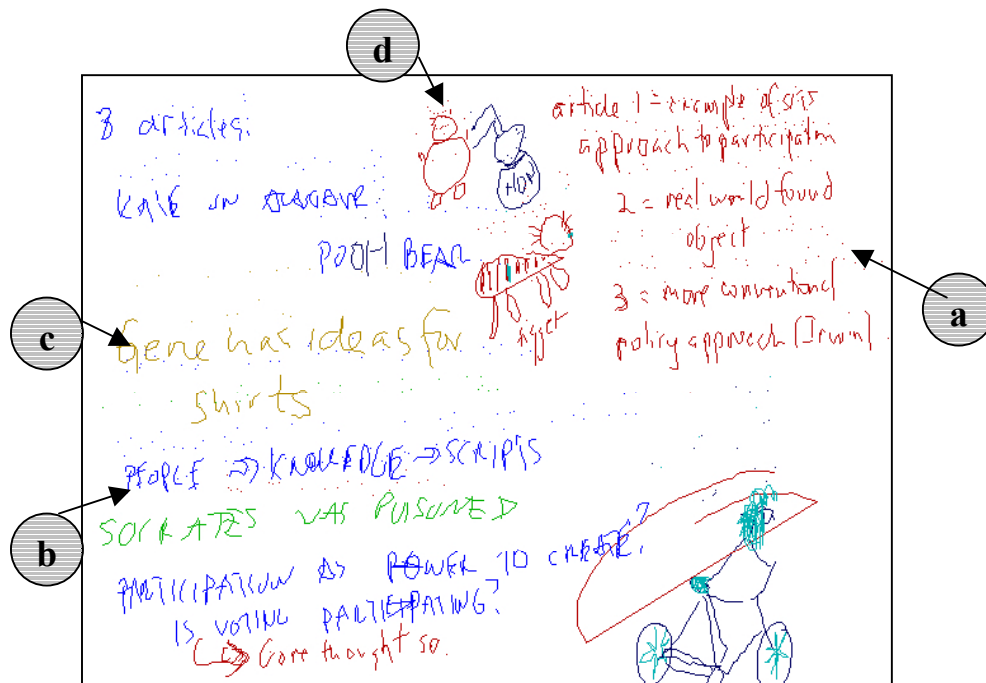 d
3 articles:
article 1 = example of
approach to participation
IN
2 = real world found
object
POOH BEAR
3 = more conventional
policy approach (Irwin)
a
c
Gene has ideas for
shirts
PEOPLE ⇒ KNOWLEDGE ⇒ SCRIPTS
b
SOCRATES WAS POISONED
PARTICIPATION AS POWER TO CREATE?
IS VOTING PARTICIPATING?
↳ Gore thought so.